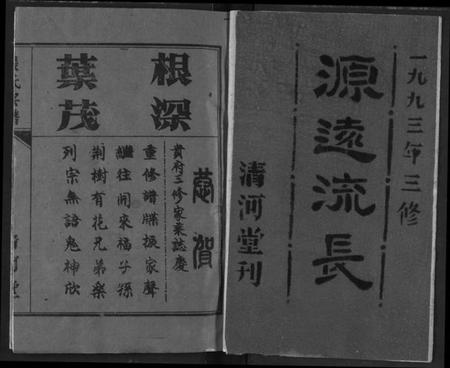 一九九三年三修
源遠流長
清河堂刊
根深
葉茂
恭賀
貴府三修家乘誌慶
重修譜牒振家聲
繼往開來福子孫
荆樹有花兄弟樂
列宗無語鬼神欣
張氏宗譜
清河堂